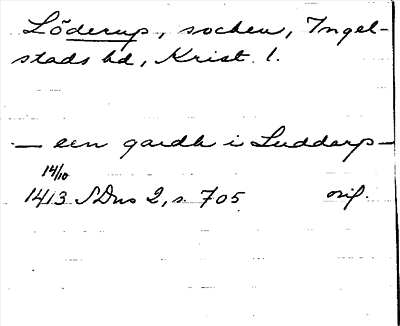 Löderup, socken, Ingel-
stads hd, Krist. l.
— een gardh i Luddarp —
14/10
1413 SDns 2, s. 705 orig.